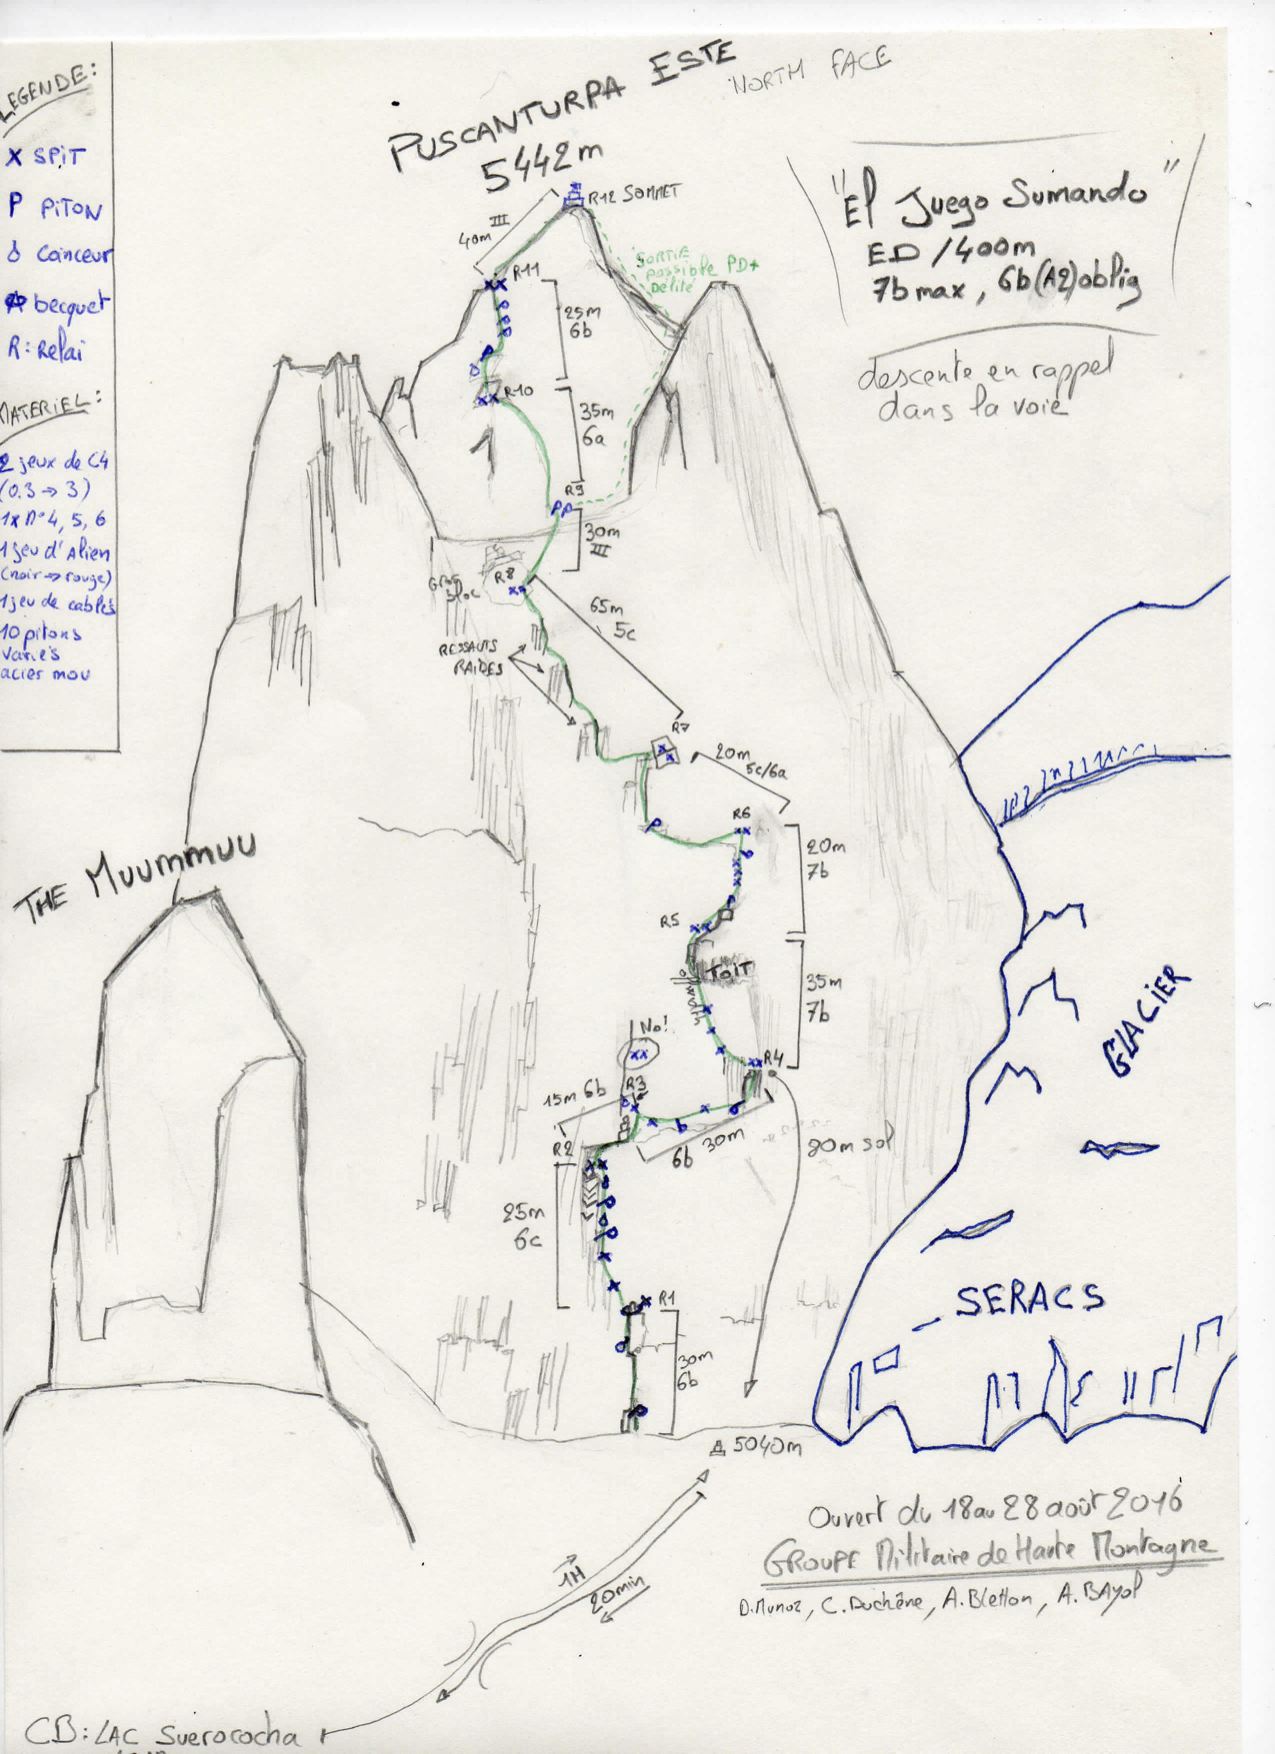 LEGENDE:
X SPIT
P PITON
Coinceur
becquet
R: Relai
MATERIEL:
2 jeux de C4
(0.3 → 3)
1x N°4, 5, 6
1 jeu d'Alien
(noir → rouge)
1 jeu de cables
10 pitons
variés
acier mou
PUSCANTURPA ESTE
NORTH FACE
5442m
"El Juego Sumando"
ED /400m
7b max, 6b(A2) oblig
descente en rappel
dans la voie
R12 SOMMET
40m III
SORTIE
possible PD+
Délité
R11
25m
6b
R10
35m
6a
1
R9
30m
III
R8
Gros
Bloc
65m
5c
RESSAUTS
RAIDES
R7
20m
5c/6a
R6
20m
7b
R5
TOIT
35m
7b
No!
R4
R3
15m 6b
R2
6b 30m
20m sol
25m
6c
R1
30m
6b
THE Muummuu
GLACIER
SERACS
5040m
1H
20min
Ouvert du 18 au 28 août 2016
GROUPE Militaire de Haute Montagne
D.Munoz, C.Duchêne, A.Bletton, A.BAyol
CB: LAC Suerococha